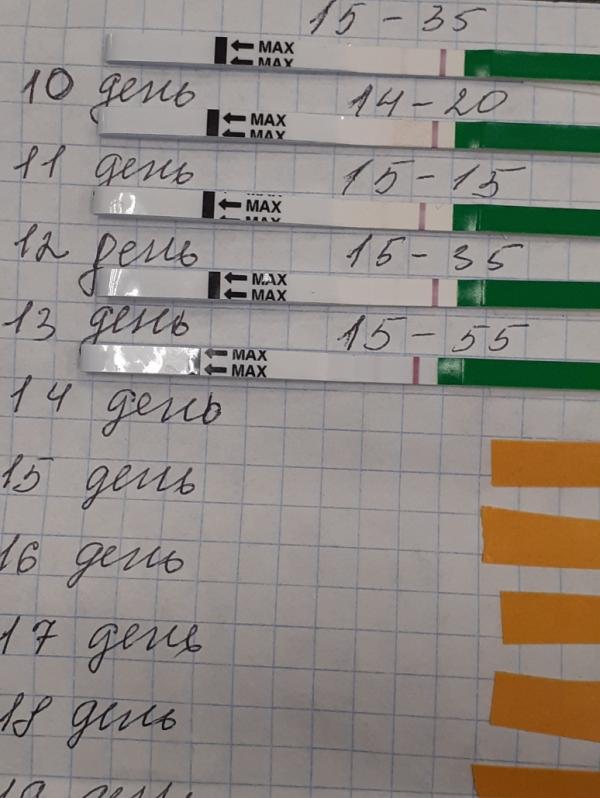 15 - 35
← MAX
← MAX
10 день 14 - 20
← MAX
← MAX
11 день 15 - 15
MAX
← MAX
MAX
12 день 15 - 35
← MAX
← MAX
13 день 15 - 55
← MAX
← MAX
14 день
15 день
16 день
17 день
18 день
19 день